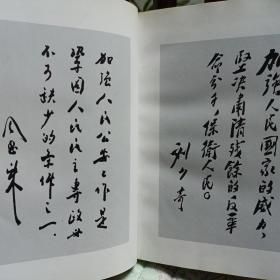 加强人民國家的威力，
坚决肃清残餘的反革
命分子，保衛人民。
刘少奇
加强人民公安工作是
鞏固人民民主專政必
不可缺少的条件之一。
周恩来